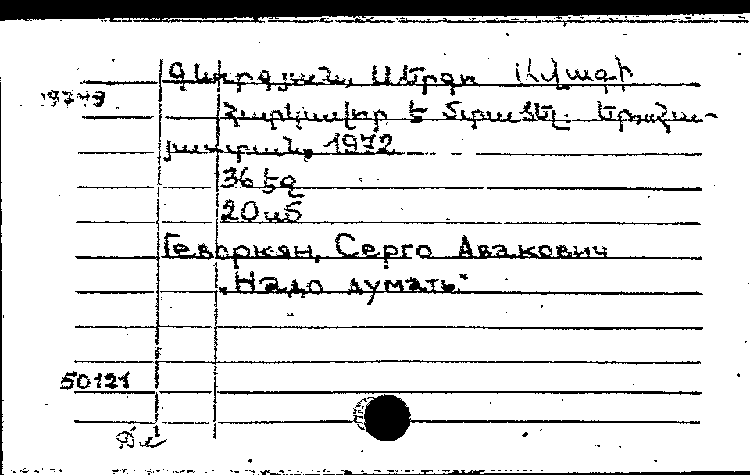 Գևորգյան, Սերգո Ավագի
19749
Հարկավոր է մտածել. Երահա-
յաստան, 1972
36 էջ
20 սմ
Геворкян, Серго Авакович
"Надо думать"
50121